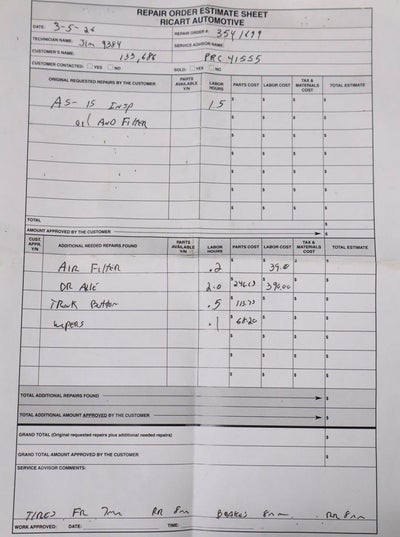 REPAIR ORDER ESTIMATE SHEET
RICART AUTOMOTIVE
DATE: 3-5-26 REPAIR ORDER #: 3541699
TECHNICIAN NAME: Jim 9384 SERVICE ADVISOR NAME:
CUSTOMER'S NAME: 133,686 PRC 41555
CUSTOMER CONTACTED: YES NO SOLD: YES NO
ORIGINAL REQUESTED REPAIRS BY THE CUSTOMER PARTS AVAILABLE Y/N LABOR HOURS PARTS COST LABOR COST TAX & MATERIALS COST TOTAL ESTIMATE
AS-IS INSP 1.5 $ $ $ $
oil AND FILTER $ $ $ $
$ $ $ $
$ $ $ $
$ $ $ $
$ $ $ $
TOTAL
AMOUNT APPROVED BY THE CUSTOMER $
CUST. APPR. Y/N ADDITIONAL NEEDED REPAIRS FOUND PARTS AVAILABLE Y/N LABOR HOURS PARTS COST LABOR COST TAX & MATERIALS COST TOTAL ESTIMATE
AIR FILTER .2 $ $ 39.0 $ $
DR AXLE 2.0 $ $ 390.00 $ $
TRUNK BUTTON .5 $ 113.73 $ $ $
WIPERS .1 $ 68.20 $ $ $
$ $ $ $
$ $ $ $
TOTAL ADDITIONAL REPAIRS FOUND $
TOTAL ADDITIONAL AMOUNT APPROVED BY THE CUSTOMER $
GRAND TOTAL (Original requested repairs plus additional needed repairs) $
GRAND TOTAL AMOUNT APPROVED BY THE CUSTOMER $
SERVICE ADVISOR COMMENTS:
TIRES FR 7mm RR 8mm BRAKES 8mm RR 8mm
WORK APPROVED: DATE: TIME: